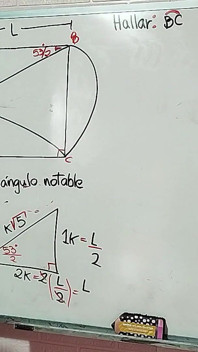 L
Hallar: BC
B
53/2
C
ángulo notable
K√5
1K = L/2
53°/2
2K = 2(L/2) = L